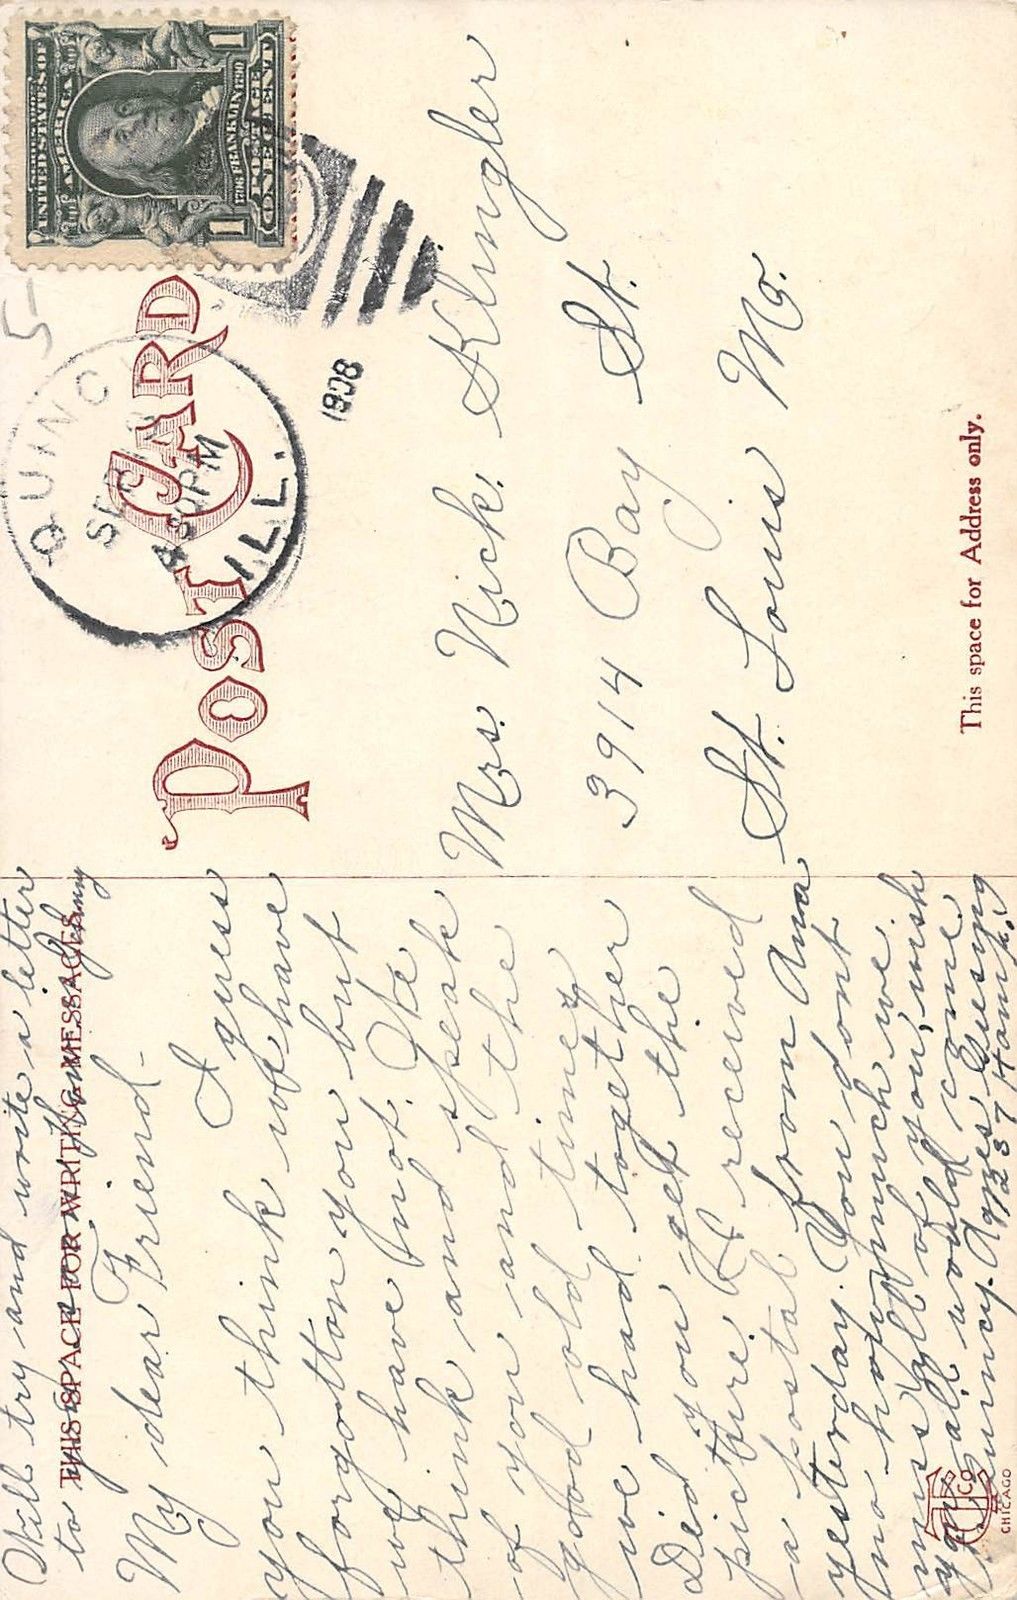 UNITED STATES OF
AMERICA
1706 FRANKLIN 1790
POSTAGE
ONE CENT
1 1
5
QUINCY
SEP
430 PM
ILL.
1908
POST CARD
THIS SPACE FOR WRITING MESSAGES
Will try and write a letter
to you soon
My dear Friend-
I guess
you think we have
forgotton you but
we have not. We
think and speak
of you and the
good old times
we had together
Did you get the
picture. I received
a postal from Ana
yesterday. You dont
no how much we
miss all of you, wish
you all would come
Quincy. Agnes Guesing
1237 Hamp.
Mrs. Nick. Klingler
3914 Bay St.
St. Louis Mo.
This space for Address only.
CO
CHICAGO